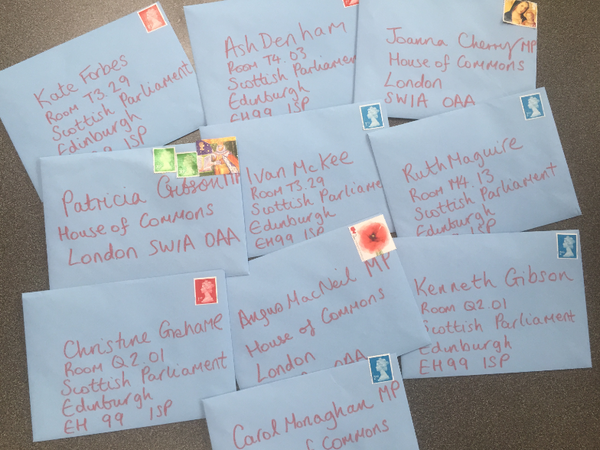 Kate Forbes
Room T3.29
Scottish Parliament
Edinburgh
EH99 1SP
Ash Denham
Room T4.03
Scottish Parliament
Edinburgh
EH99 1SP
Joanna Cherry MP
House of Commons
London
SW1A 0AA
Patricia Gibson MP
House of Commons
London SW1A 0AA
Ivan McKee
Room T3.29
Scottish Parliame
Edinburgh
EH99 1SP
Ruth Maguire
Room M4.13
Scottish Parliament
Edinburgh
1SP
Christine Grahame
Room Q2.01
Scottish Parliament
Edinburgh
EH 99 1SP
Angus MacNeil MP
House of Commons
London
0AA
Kenneth Gibson
Room Q2.01
Scottish Parliament
Edinburgh
EH99 1SP
Carol Monaghan MP
of Commons